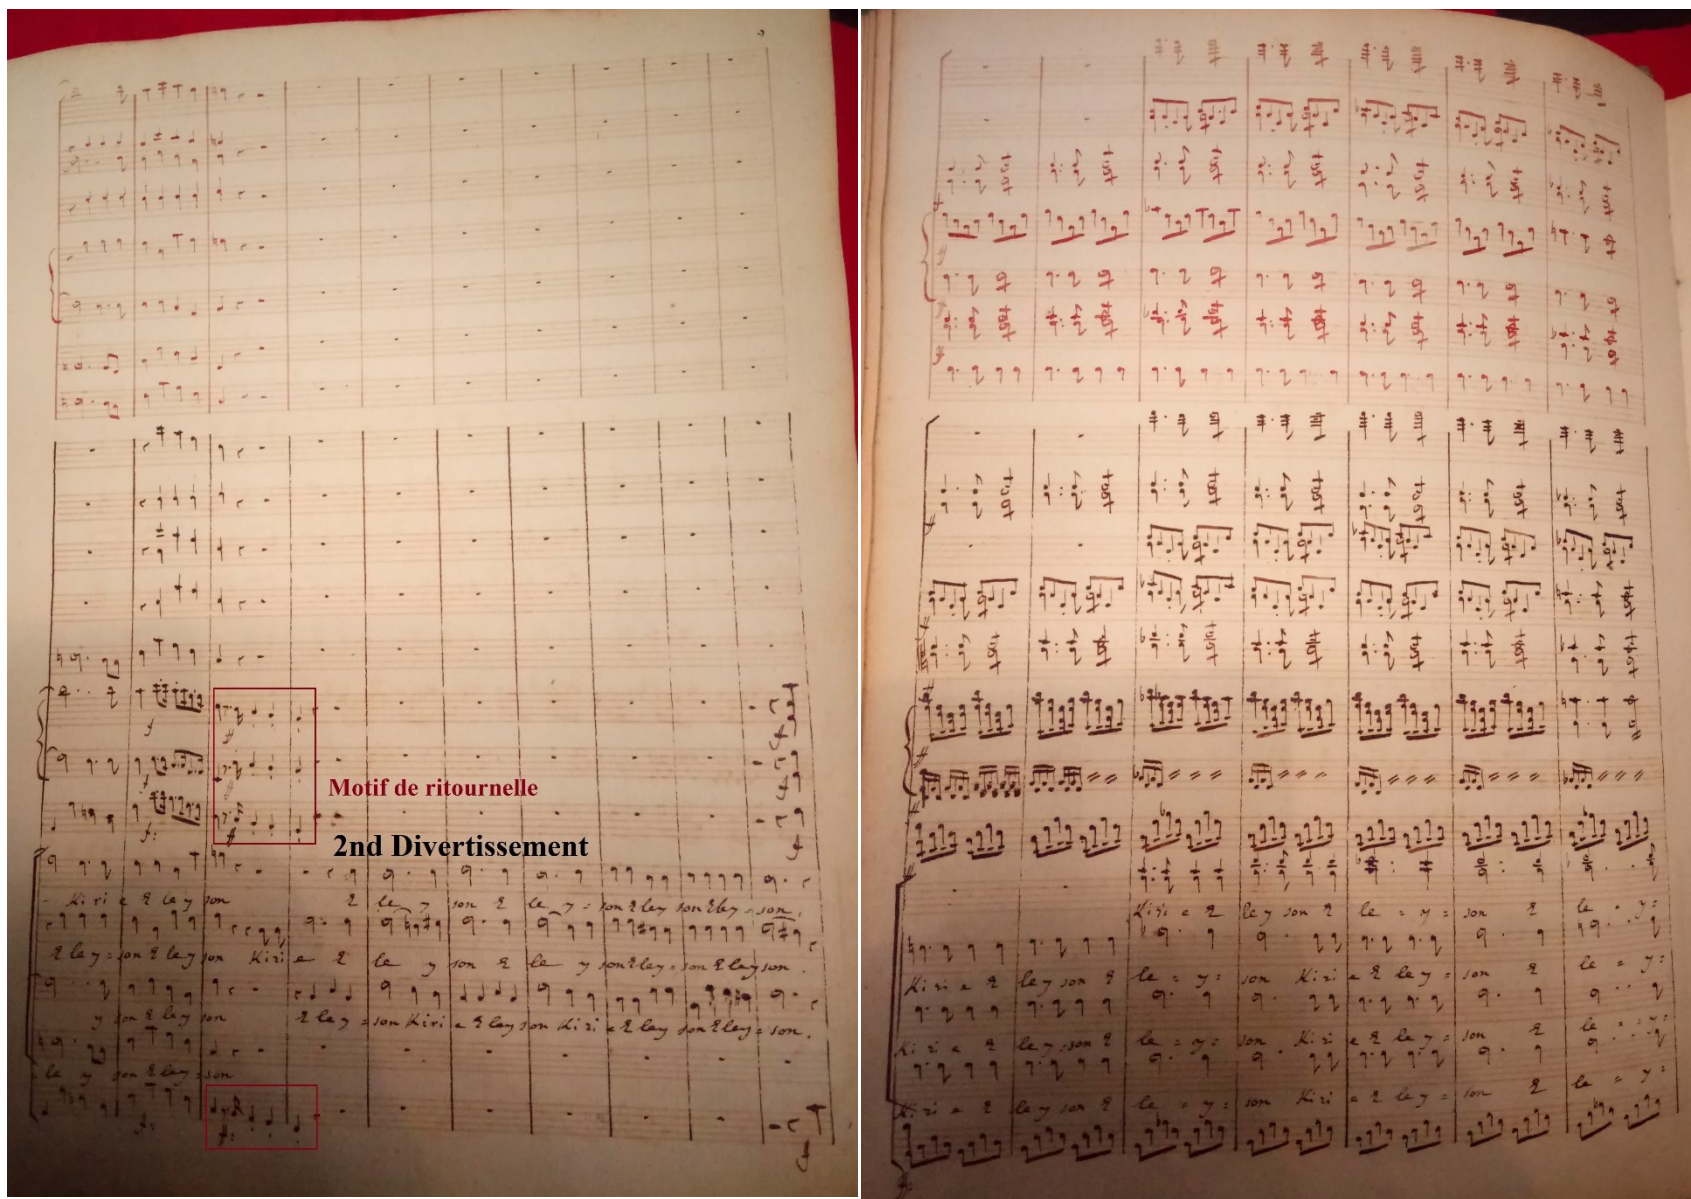 Motif de ritournelle
2nd Divertissement
Kiri e E ley son E le y son E le y = son E ley son E ley = son.
E ley = son E ley son Kiri e E le y son E le y son E ley = son E ley son.
y son E ley son E ley = son Kiri e E ley son Kiri e E ley son E ley = son.
le y son E ley = son
Kiri e E ley son E le = y = son E le = y =
Kiri e E ley son E le = y = son Kiri e E ley = son E le = y =
Kiri e E ley = son E le = y = son Kiri e E ley = son E le = y =
Kiri e E ley son E le = y = son Kiri e E ley = son E le = y =